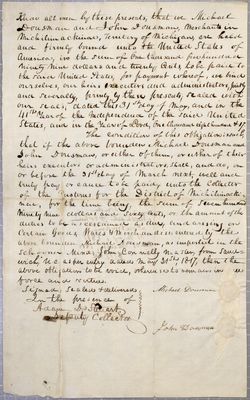 Know all men by these presents, that we Michael
Dousman and John Dousman, Merchants in
Michilimackinac, Territory of Michigan are held
and firmly bound unto the United States of
America, in the sum of One thousand five hundred
Ninety Nine dollars and twenty Cents to be paid to
the said United States, for payment whereof, we bind
ourselves, our heirs executors and administrators, jointly
and severally, firmly by these presents Sealed with
our seals, dated this 31st May, and in the
41st Year of the Independence of the said United
States, and in the Year of Lord,
The condition of this obligation is such
that if the above bounden Michael Dousman and
John Dousman, or either of them, or either of their
heirs executors or administrators, shall and do, on
or before the 31st day of March next, well and
truly pay or cause to be paid unto the Collector
of the Customs for the District of Michilimacki
nac, for the time being, the sum of Seven hundred
Ninety Nine dollars and Sixty Cents, or the amount of the
duties to be ascertained as due, and arising on
Certain Goods, Wares & Merchandise entered by the
above bounden Michael Dousman, as imported in the
Schooner John Connelly Master, from Sand
wich, as entry dated May 31st 1817, then the
above obligation to be void, otherwise to remain in
force and virtue.
Signed Sealed & delivered
In the presence of
Adam D. Steuart
Deputy Collector
Michael Dousman
John Dousman